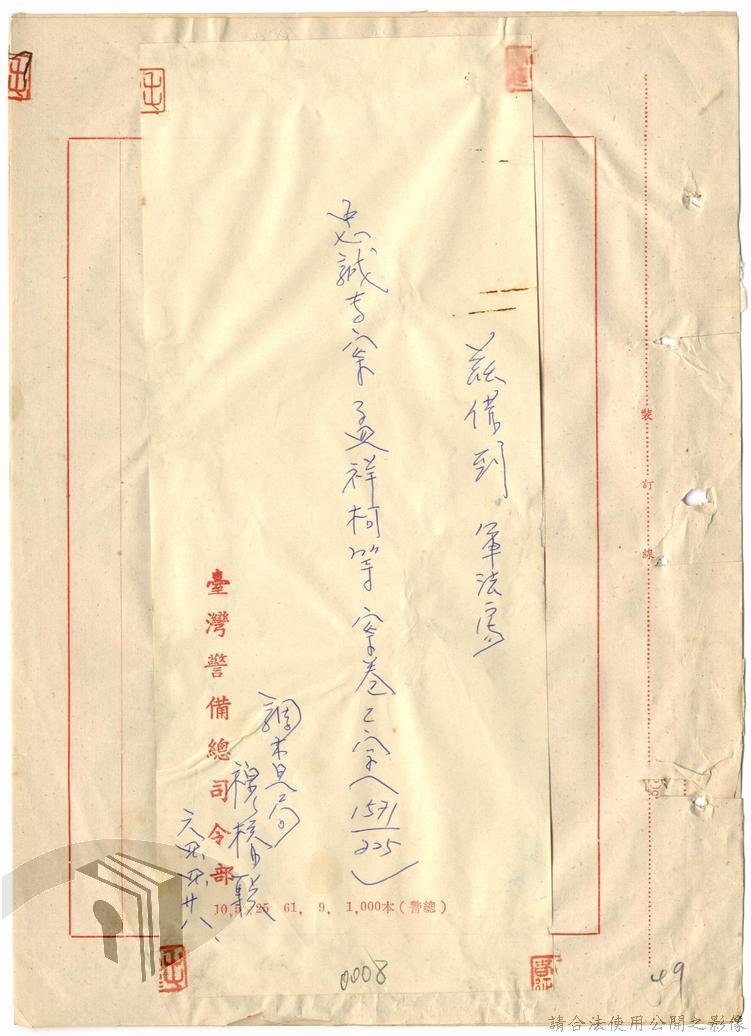 茲借到 軍法處
忠誠專案 孟祥柯等 案卷乙宗（1571/225）
調查局
六四、四、廿八、
臺灣警備總司令部
61. 9. 1,000本（警總）
0008
49
裝訂線
請合法使用公開之影像